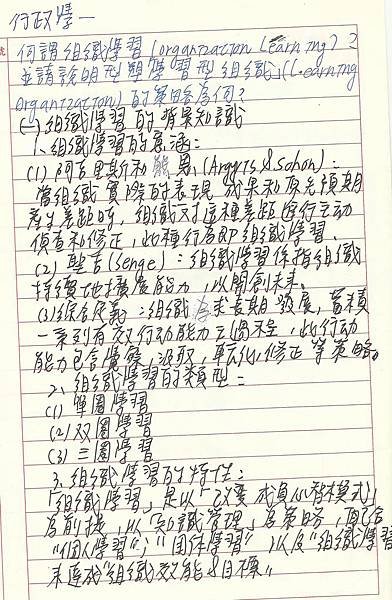 行政學一
何謂組織學習(organization Learning)?
並請說明型塑學習型組織」(Learning
Organization)的策略為何?
㈠組織學習的背景知識
1、組織學習的意涵:
(1)阿吉里斯和熊恩(Argyris & Schon):
當組織實際的表現 成果和原先預期
產生差距時,組織對這種差距進行主動
偵查和修正,此種行為即組織學習.
(2)聖吉(Senge):組織學習係指組織
持續地擴展能力,以開創未來.
(3)綜合定義:組織為求長期發展,蓄積
一系列有效行動能力之過程,此行動
能力包含覺察,汲取,轉化,修正等策略。
2、組織學習的類型:
(1)單圈學習
(2)双圈學習
(3)三圈學習
3、組織學習的特性:
「組織學習」是以「改變成員心智模式」
為前提,以「知識管理」為策略,包含
"個人學習";"團体學習",以及"組織學習
來達成"組織效能&目標"